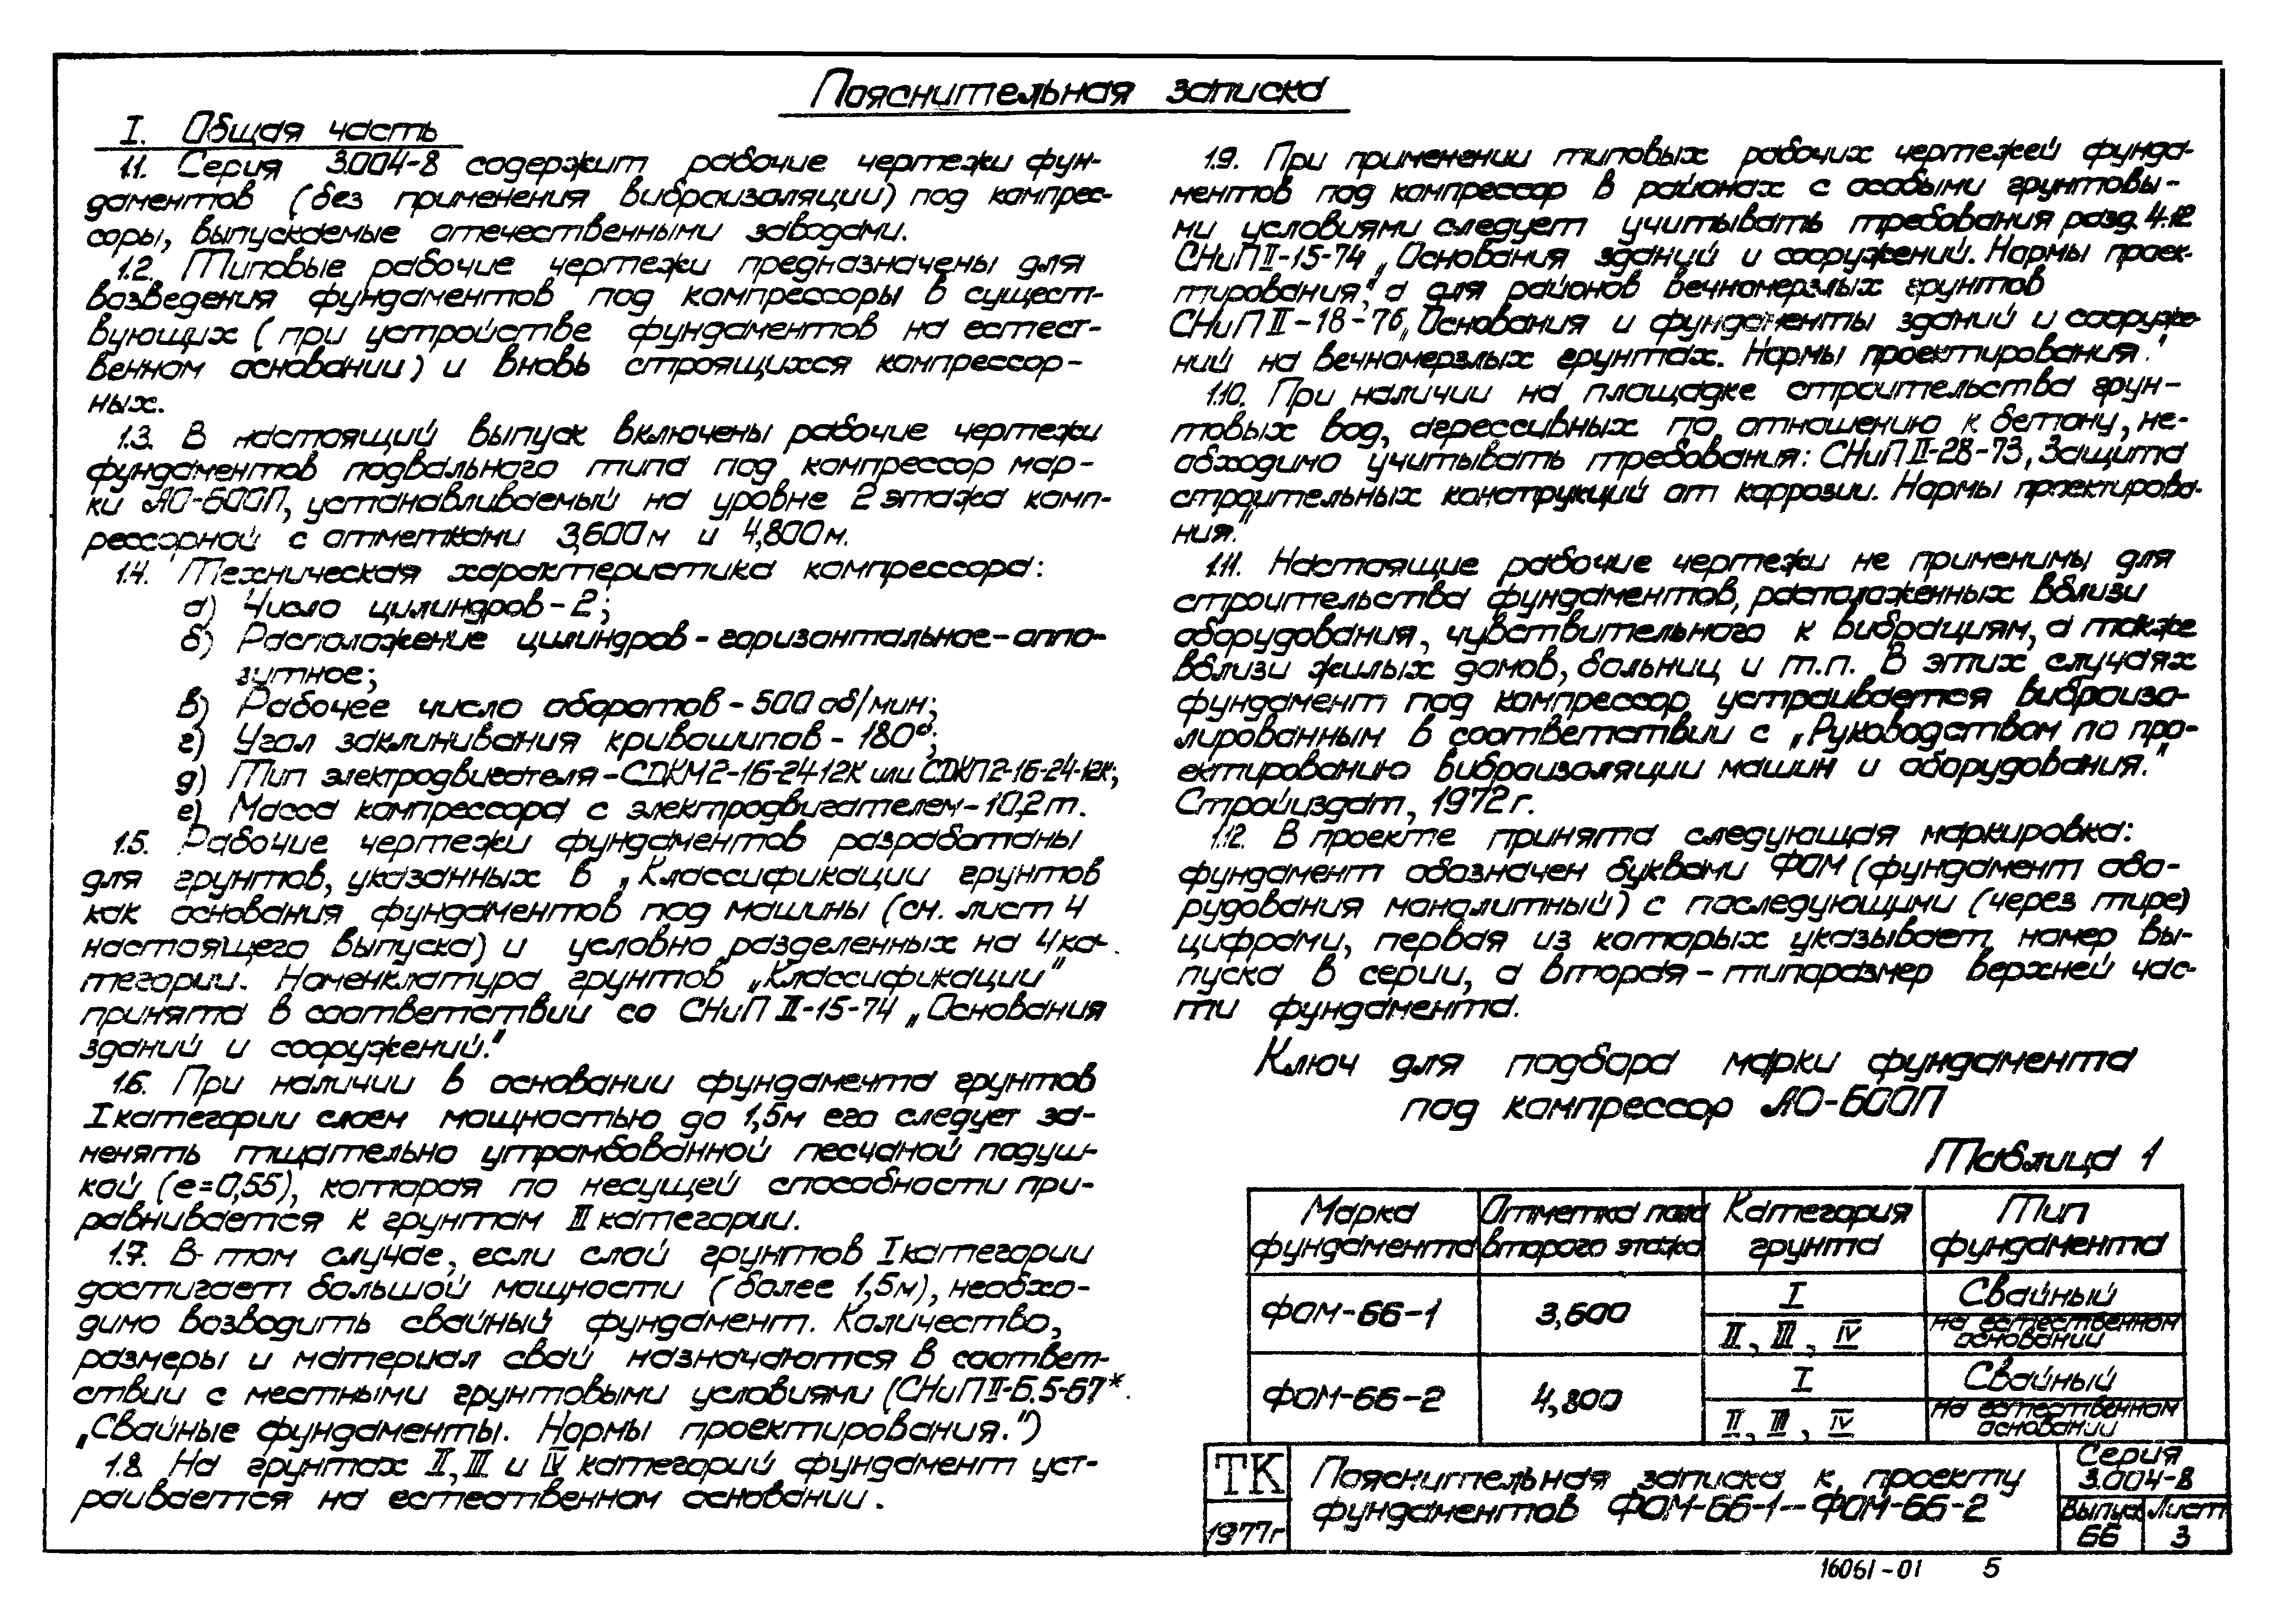 Пояснительная записка
I. Общая часть
1.1. Серия 3.004-8 содержит рабочие чертежи фун-
даментов (без применения виброизоляции) под компрес-
соры, выпускаемые отечественными заводами.
1.2. Типовые рабочие чертежи предназначены для
возведения фундаментов под компрессоры в сущест-
вующих (при устройстве фундаментов на естест-
венном основании) и вновь строящихся компрессор-
ных.
1.3. В настоящий выпуск включены рабочие чертежи
фундаментов подвального типа под компрессор мар-
ки АО-600П, устанавливаемый на уровне 2 этажа комп-
рессорной с отметками 3,600м и 4,800м.
1.4. Техническая характеристика компрессора:
а) Число цилиндров-2;
б) Расположение цилиндров-горизонтальное-оппо-
зитное;
в) Рабочее число оборотов-500 об/мин;
г) Угол заклинивания кривошипов-180°;
д) Тип электродвигателя-СДКМ2-16-24-12К или СДКП2-16-24-12К;
е) Масса компрессора с электродвигателем-10,2т.
1.5. Рабочие чертежи фундаментов разработаны
для грунтов, указанных в „Классификации грунтов
как основания фундаментов под машины (см. лист 4
настоящего выпуска) и условно разделенных на 4 ка-
тегории. Номенклатура грунтов „Классификации"
принята в соответствии со СНиП II-15-74 „Основания
зданий и сооружений."
1.6. При наличии в основании фундамента грунтов
I категории слоем мощностью до 1,5м его следует за-
менять тщательно утрамбованной песчаной подуш-
кой (e=0,55), которая по несущей способности при-
равнивается к грунтам III категории.
1.7. В том случае, если слой грунтов I категории
достигает большой мощности (более 1,5м), необхо-
димо возводить свайный фундамент. Количество,
размеры и материал свай назначаются в соответ-
ствии с местными грунтовыми условиями (СНиП II-Б.5-67*.
„Свайные фундаменты. Нормы проектирования.")
1.8. На грунтах II, III и IV категорий фундамент уст-
раивается на естественном основании.
1.9. При применении типовых рабочих чертежей фунда-
ментов под компрессор в районах с особыми грунтовы-
ми условиями следует учитывать требования разд. 4.12
СНиП II-15-74 „Основания зданий и сооружений. Нормы проек-
тирования", а для районов вечномерзлых грунтов
СНиП II-18-76 „Основания и фундаменты зданий и сооруже-
ний на вечномерзлых грунтах. Нормы проектирования."
1.10. При наличии на площадке строительства грун-
товых вод, агрессивных по отношению к бетону, не-
обходимо учитывать требования: СНиП II-28-73 „Защита
строительных конструкций от коррозии. Нормы проектирова-
ния."
1.11. Настоящие рабочие чертежи не применимы для
строительства фундаментов, расположенных вблизи
оборудования, чувствительного к вибрациям, а также
вблизи жилых домов, больниц и т.п. В этих случаях
фундамент под компрессор устраивается виброизо-
лированным в соответствии с „Руководством по про-
ектированию виброизоляции машин и оборудования."
Стройиздат, 1972г.
1.12. В проекте принята следующая маркировка:
фундамент обозначен буквами ФОМ (фундамент обо-
рудования монолитный) с последующими (через тире)
цифрами, первая из которых указывает номер вы-
пуска в серии, а вторая-типоразмер верхней час-
ти фундамента.
Ключ для подбора марки фундамента
под компрессор АО-600П
Таблица 1
Марка фундамента Отметка пола второго этажа Категория грунта Тип фундамента
ФОМ-66-1 3,600 I Свайный
II, III, IV на естественном основании
ФОМ-66-2 4,800 I Свайный
II, III, IV на естественном основании
ТК
1977г
Пояснительная записка к проекту
фундаментов ФОМ-66-1-ФОМ-66-2
Серия
3.004-8
Выпуск Лист
66 3
16061-01 5